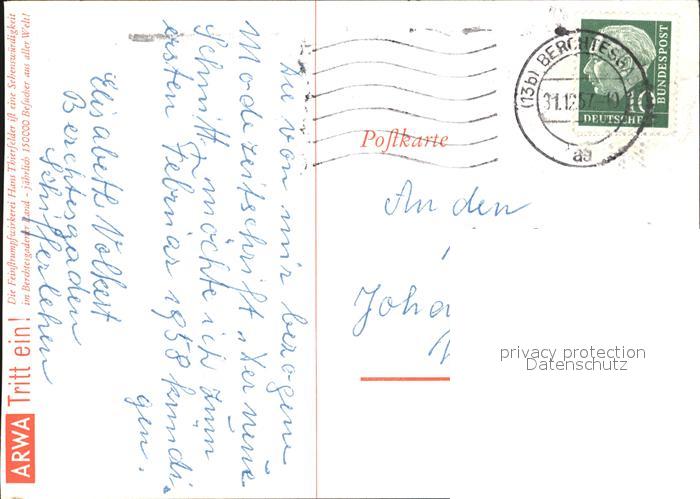 Die von mir bezogene
Modezeitschrift „Der neue
Schnitt“ möchte ich zum
ersten Februar 1958 kündi-
gen.
Elisabeth Volkert
Berchtesgaden
Schifferlehen
ARWA Tritt ein!
Die Feinstrumpfwirkerei Hans Thierfelder ist eine Sehenswürdigkeit
im Berchtesgadener Land – jährlich 150000 Besucher aus aller Welt!
Postkarte
(13b) BERCHTESGA
31.12.57.-10
ag
10
DEUTSCHE
BUNDESPOST
An den
Joha
privacy protection
Datenschutz